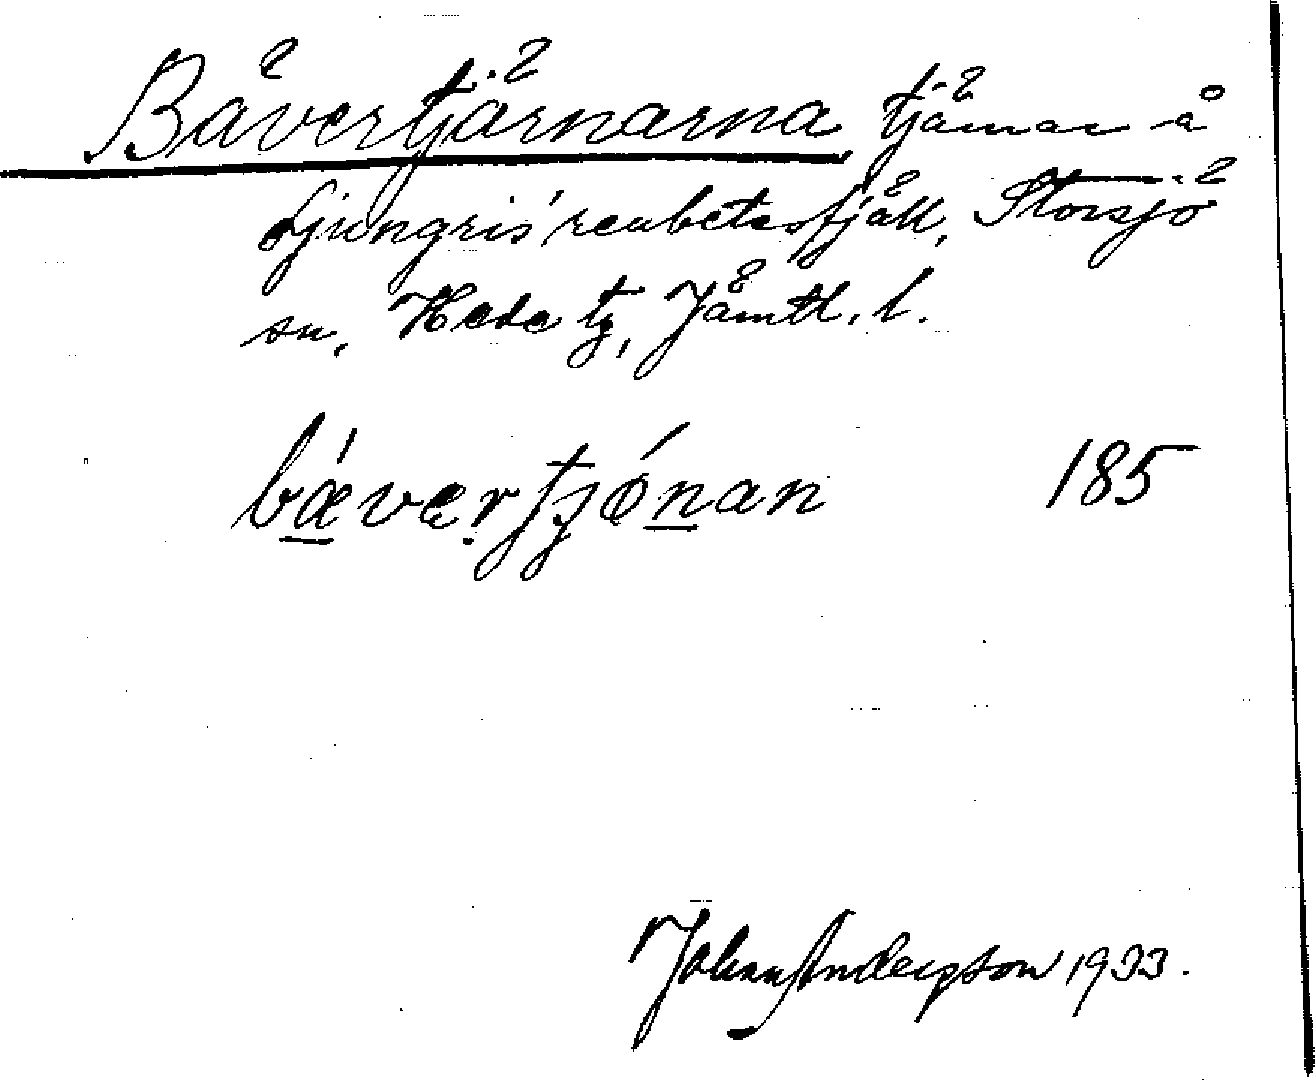 Bävertjärnarna, tjärnar å
Ljungris' renbetesfjäll, Storsjö
sn, Hede tg, Jämtl. l.
bǽvertjǿnan 185
Johan Andersson 1933.